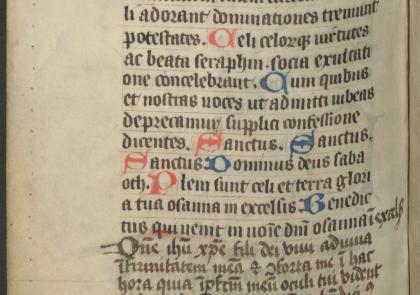 li adorant dominationes tremunt
potestates. Celi celorqꝫ uirtutes
ac beata seraphin. socia exultati
one concelebrant. Cum quibus
et nostras uoces ut admitti iubeas
deprecamur supplici confessione
dicentes. Sanctus. Sanctus.
Sanctus. Dominus deus saba
oth. Pleni sunt celi et terra glori
a tua osanna in excelsis. Benedic
tus qui uenit in noīe dn̄i osanna i excels
One ihū xp̄e fili dei uiui adiuua
īfirmitatem meā ⁊ ꝯforta me ī hac
hora quia īp̄fcm̄ meū oculi tui vident